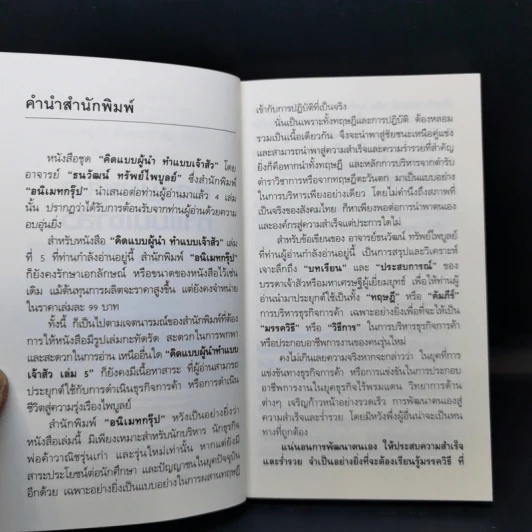 คำนำสำนักพิมพ์
หนังสือชุด "คิดแบบผู้นำ ทำแบบเจ้าสัว" โดย
อาจารย์ "ธนวัฒน์ ทรัพย์ไพบูลย์" ซึ่งสำนักพิมพ์
"อนิเมทกรุ๊ป" นำเสนอต่อท่านผู้อ่านมาแล้ว 4 เล่ม
นั้น ปรากฏว่าได้รับการต้อนรับจากท่านผู้อ่านด้วยความ
อบอุ่นยิ่ง
สำหรับหนังสือ "คิดแบบผู้นำ ทำแบบเจ้าสัว" เล่ม
ที่ 5 ที่ท่านกำลังอ่านอยู่นี้ สำนักพิมพ์ "อนิเมทกรุ๊ป"
ก็ยังคงรักษาเอกลักษณ์ หรือขนาดของหนังสือไว้เช่น
เดิม แม้ต้นทุนการผลิตจะราคาสูงขึ้น แต่ยังคงจำหน่าย
ในราคาเล่มละ 99 บาท
ทั้งนี้ ก็เป็นไปตามเจตนารมณ์ของสำนักพิมพ์ที่ต้อง
การให้หนังสือมีรูปเล่มกะทัดรัด สะดวกในการพกพา
และสะดวกในการอ่าน เหนืออื่นใด "คิดแบบผู้นำทำแบบ
เจ้าสัว เล่ม 5" ก็ยังคงมีเนื้อหาสาระ ที่ผู้อ่านสามารถ
ประยุกต์ใช้กับการดำเนินธุรกิจการค้า หรือการดำเนิน
ชีวิตสู่ความรุ่งเรืองไพบูลย์
สำนักพิมพ์ "อนิเมทกรุ๊ป" หวังเป็นอย่างยิ่งว่า
หนังสือเล่มนี้ มีเพียงเหมาะสำหรับนักบริหาร นักธุรกิจ
พ่อค้าวาณิชรุ่นเก่า และรุ่นใหม่เท่านั้น หากแต่ยังมี
สาระประโยชน์ต่อนักศึกษา และปัญญาชนในยุคปัจจุบัน
อีกด้วย เฉพาะอย่างยิ่งเป็นแบบอย่างในการผสานทฤษฎี
เข้ากับการปฏิบัติที่เป็นจริง
นั่นเป็นเพราะทั้งทฤษฎีและการปฏิบัติ ต้องหลอม
รวมเป็นเนื้อเดียวกัน จึงจะนำพาสู่ชัยชนะเหนือคู่แข่ง
และสามารถนำพาสู่ความสำเร็จและความร่ำรวยที่สำคัญ
ยิ่งก็คือหากนำทั้งทฤษฎี และหลักการบริหารจากตำรับ
ตำราวิชาการหรือจากทฤษฎีตะวันตก มาเป็นแบบอย่าง
ในการบริหารเพียงอย่างเดียว โดยไม่คำนึงถึงสภาพที่
เป็นจริงของสังคมไทย ก็หาเพียงพอต่อการนำพาตนเอง
และองค์กรสู่ความสำเร็จแต่ประการใดไม่
สำหรับข้อเขียนของ อาจารย์ธนวัฒน์ ทรัพย์ไพบูลย์
ที่ท่านผู้อ่านกำลังอ่านอยู่นี้ เป็นการสรุปและวิเคราะห์
เจาะลึกถึง "บทเรียน" และ "ประสบการณ์" ของ
บรรดาเจ้าสัวหรือมหาเศรษฐีผู้เยี่ยมยุทธ์ เพื่อให้ท่านผู้
อ่านนำมาประยุกต์ใช้เป็นทั้ง "ทฤษฎี" หรือ "คัมภีร์"
การบริหารธุรกิจการค้า เฉพาะอย่างยิ่งเพื่อที่จะให้เป็น
"มรรควิธี" หรือ "วิธีการ" ในการบริหารธุรกิจการค้า
หรือประกอบอาชีพการงานของคนรุ่นใหม่
คงไม่เกินเลยความจริงหากจะกล่าวว่า ในยุคที่การ
แข่งขันทางธุรกิจการค้า หรือการแข่งขันในการประกอบ
อาชีพการงานในยุคธุรกิจไร้พรมแดน วิทยาการด้าน
ต่างๆ เจริญก้าวหน้าอย่างรวดเร็ว การพัฒนาตนเองสู่
ความสำเร็จและร่ำรวย โดยมิหวังพึ่งผู้อื่นน่าจะเป็นหน
ทางที่ถูกต้อง
แน่นอนการพัฒนาตนเอง ให้ประสบความสำเร็จ
และร่ำรวย จำเป็นอย่างยิ่งที่จะต้องเรียนรู้มรรควิธี ที่